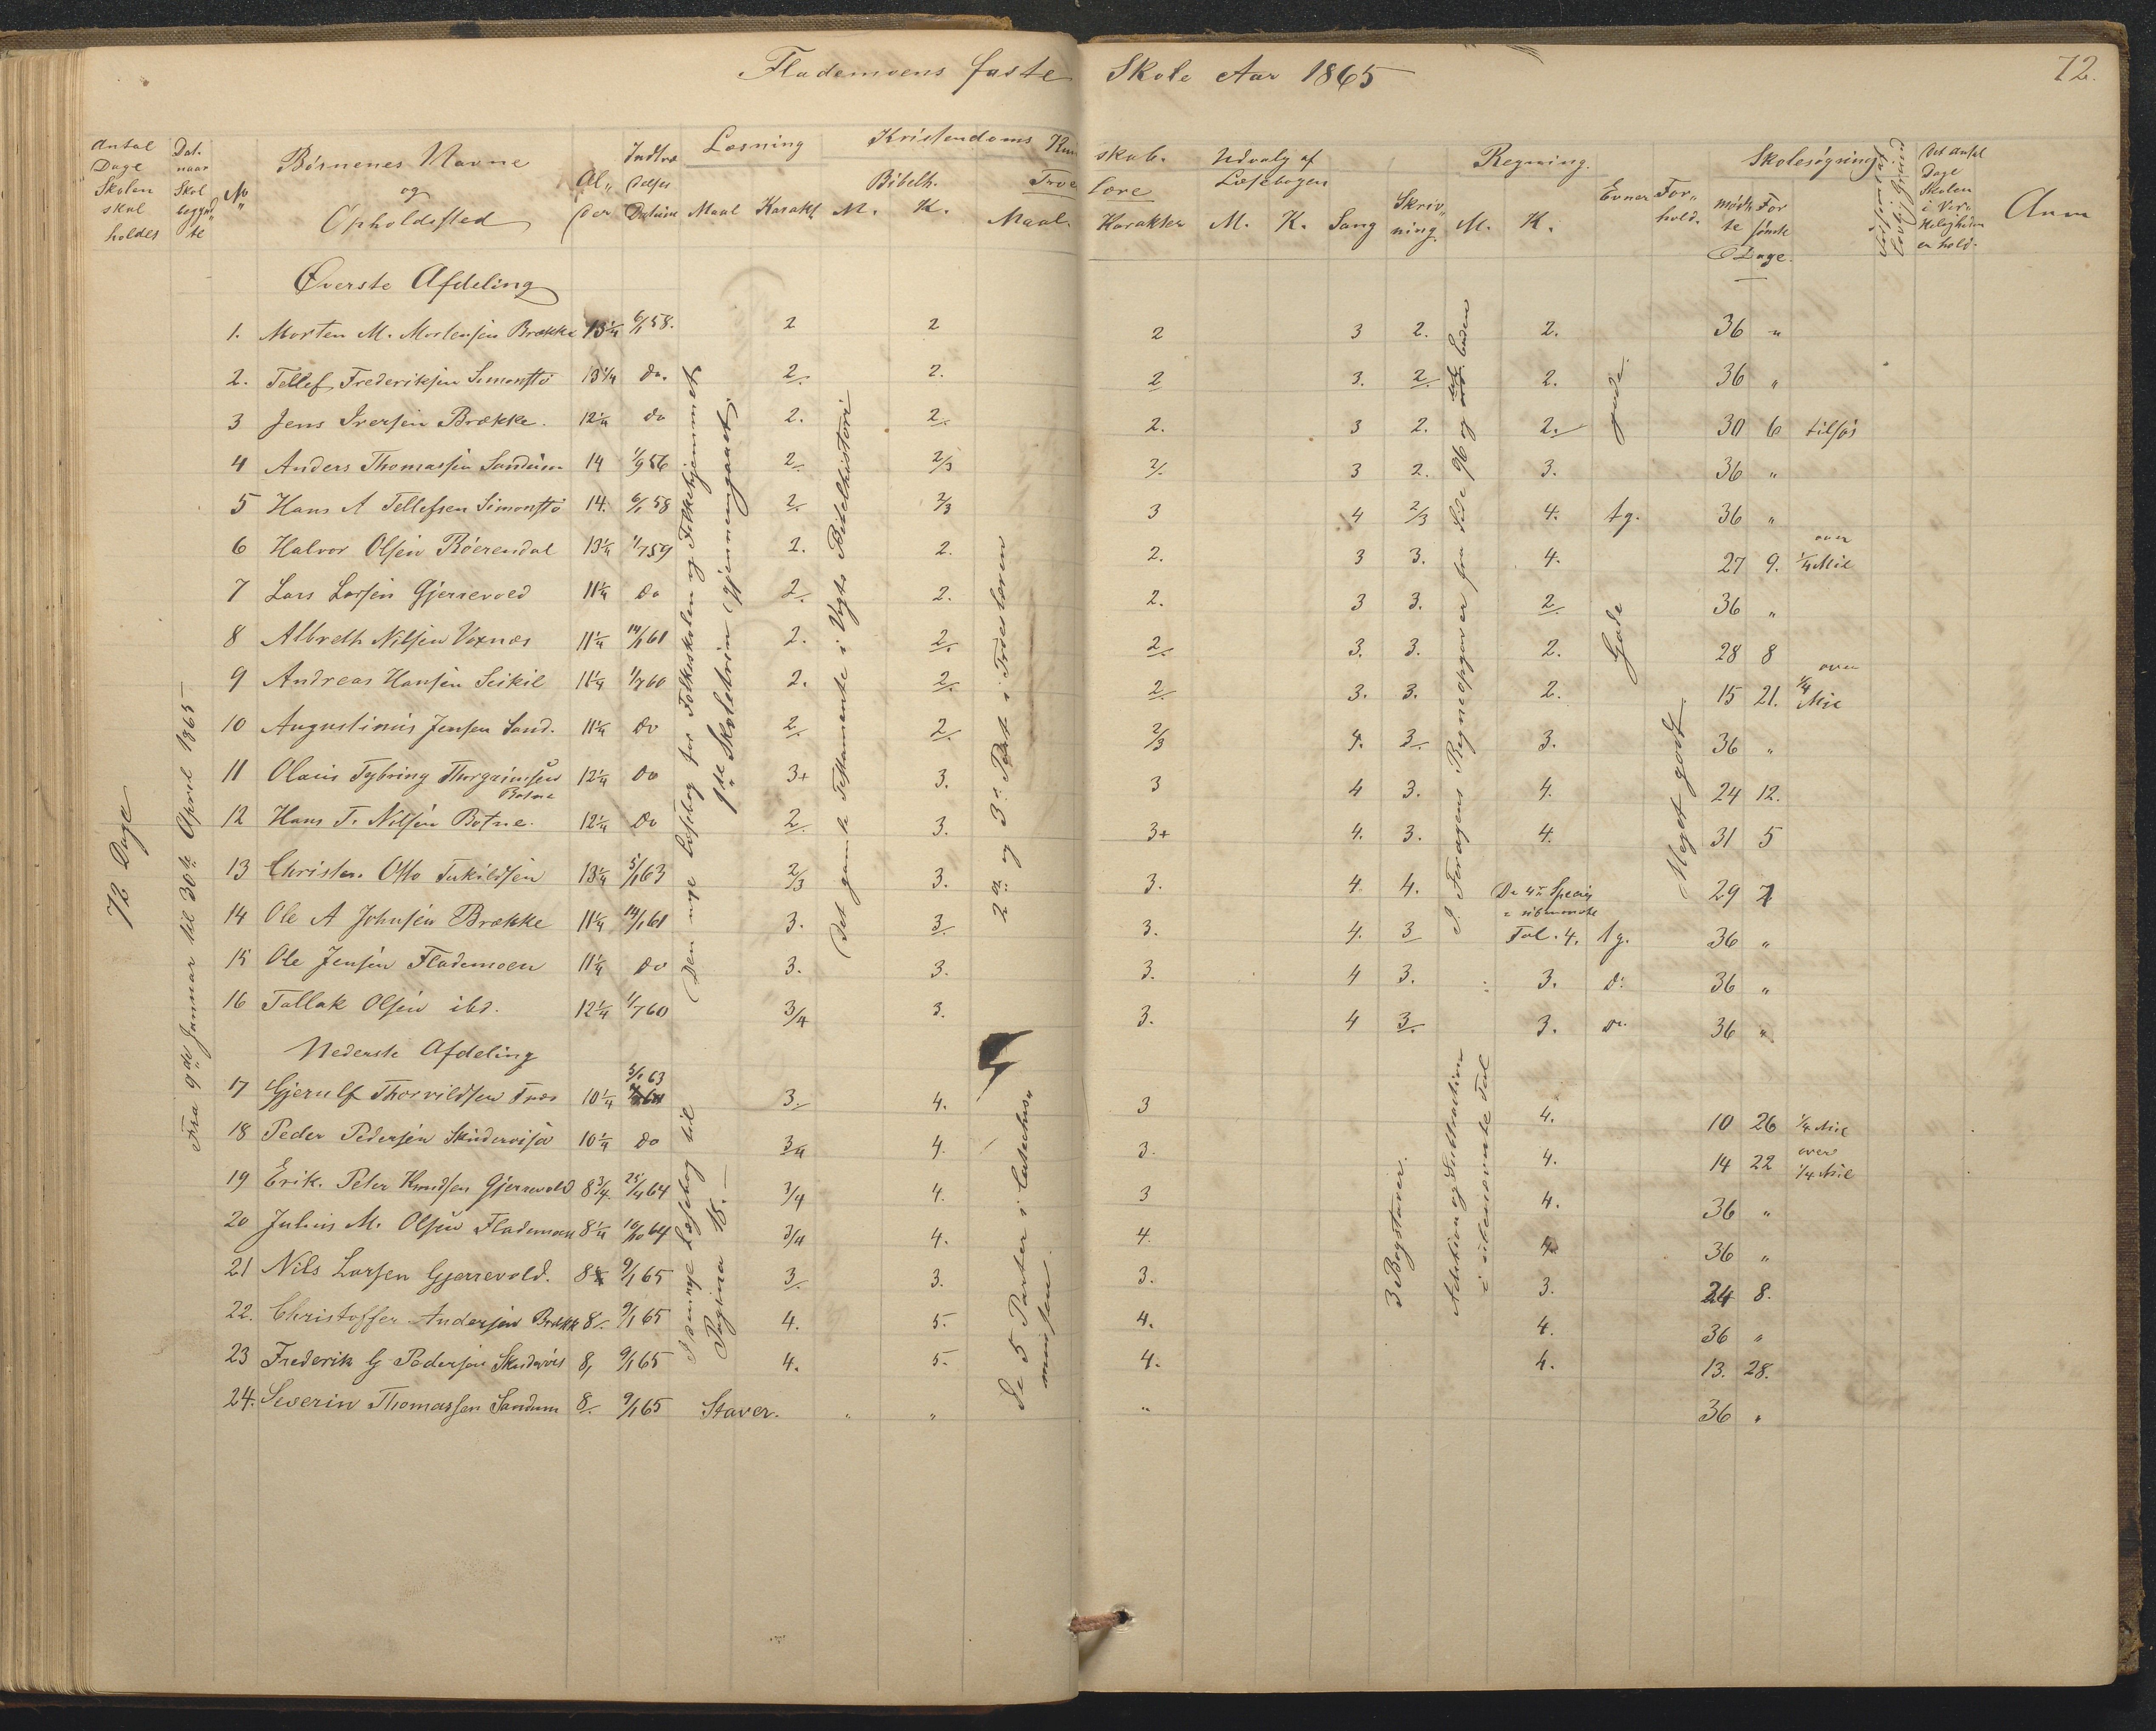 Flademoens faste Skole Aar 1865
72.
Antal Dage Skolen skal holdes
Dat. naar Skol begynd„te
No
Børnenes Navne og Opholdssted
Al„der
Indtræ delses Datum
Læsning Maal Karakt
Kristendoms Kundskab.
Bibelh. M. K.
Troeslære Maal. Karakter
Udvalg af Læsebogen M. K.
Sang
Skriv„ning.
Regning. M. K.
Evner
For„hold.
Skolesøgning
mødte Forsømte Dage.
Det Antal Dage Skolen i Vir„keligheden er hold.
Anm
72 Dage
Fra 9de Januar til 30te April 1865
Øverste Afdeling
1. Morten M. Mortensen Brække 13¼ 6/1 58. 2 2 2 3 2. 2. 36 „
2. Tellef Frederiksen Simonstø 13¼ do. 2. 2. 2 3. 2. 2. 36 „
3 Jens Iversen Brække. 12¼ do 2. 2. 2. 3 2. 2. 30 6 tilsøs
4 Anders Thomassen Sandum 14 1/9 56 2. 2/3 2/. 3 2. 3. 36 „
5 Hans A Tellefsen Simonstø 14. 6/1 58 2. 2/3 3 4 2/3 4. tg. 36 „
6 Halvor Olsen Røerendal 13¼ 1/7 59 2. 2. 2. 3 3. 4. 27 9. over ¼ Mil
7 Lars Larsen Gjerrevold 11¼ do 2. 2. 2. 3 3. 2. 36 „
8 Albreth Nilsen Voxnæs 11¼ 14/1 61 2. 2. 2. 3. 3. 2. 28 8
9 Andreas Hansen Seikil 11¼ 1/7 60 2. 2. 2. 3. 3. 2. 15 21. over ¼ Mil
10 Augustinus Jensen Sand. 11¼ do 2. 2. 2/3 4. 3. 3. 36 „
11 Olaus Tybring Thorgrimsen Botne 12¼ do 3+ 3. 3 4 3. 4. 24 12.
12 Hans T. Nilsen Botne. 12¼ do 2. 3. 3+ 4. 3. 4. 31 5
13 Christen Otto Terkildsen 13¼ 5/1 63 2/3 3. 3. 4 4. De 4re Species i ubenævnte 29 7
14 Ole A Johnsen Brække 11¼ 14/1 61 3. 3. 3. 4. 3 Tal. 4. tg. 36 „
15 Ole Jensen Flademoen 11¼ do 3. 3. 3. 4 3. 3. do 36 „
16 Tallak Olsen ibd. 12¼ 1/7 60 3/4 3. 3. 4 3. 3. do 36 „
Den nye Læsebog for Folkeskolen og Folkehjemmet
1ste Skoletrin gjennemgaaet.
Det gamle Testamente i Vogts Bibelhistorie
2en og 3e Part i Troeslæren
I Foragens Regneopgaver fra Side 96 og ud Enden
gode.
Gode
Meget godt
Nederste Afdeling
17 Gjerulf Thorvildsen Fræs 10¼ 5/1 63 3. 4. 3 4. 10 26 ¼ Mil
18 Peder Pedersen Skuderviga 10¼ do 3/4 4. 3. 4. 14 22 over ¼ Mil
19 Erik. Peter Knudsen Gjerrevold 8¾. 25/4 64 3/4 4. 3 4. 36 „
20 Julius M. Olsen Flademoen 8¼ 10/10 64 3/4 4. 4. 4. 36 „
21 Nils Larsen Gjerrevold. 8¼ 9/1 65 3. 3. 3. 3. 24 8.
22. Christoffer Andersen Brække 8/. 9/1 65 4. 5. 4. 4. 36 „
23 Frederik G Pedersen Skudervig 8, 9/1 65 4. 5. 4. 4. 13. 28.
24. Severin Thomassen Sandum 8/. 9/1 65 Staver. „ „ „ 36 „
I den nye Læsebog til
Pagina 18.
De 5 Parter i Catechis„
musen
3 Bogstaver.
Addition og Subtraction
i ubenævnte Tal